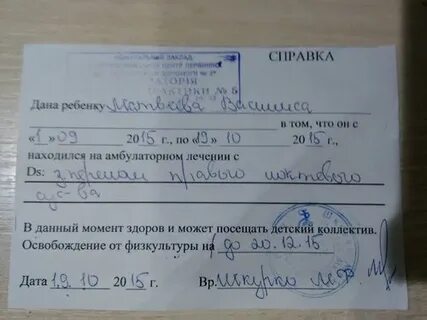 СПРАВКА
Дана ребенку Матвеева Василиса
в том, что он с
«1» 09 2015 г., по «19» 10 2015 г.,
находился на амбулаторном лечении с
Ds: перелом правого локтевого
В данный момент здоров и может посещать детский коллектив.
Освобождение от физкультуры на до 20.12.15
Дата 19 10 2015 г. Вр. Шкурко